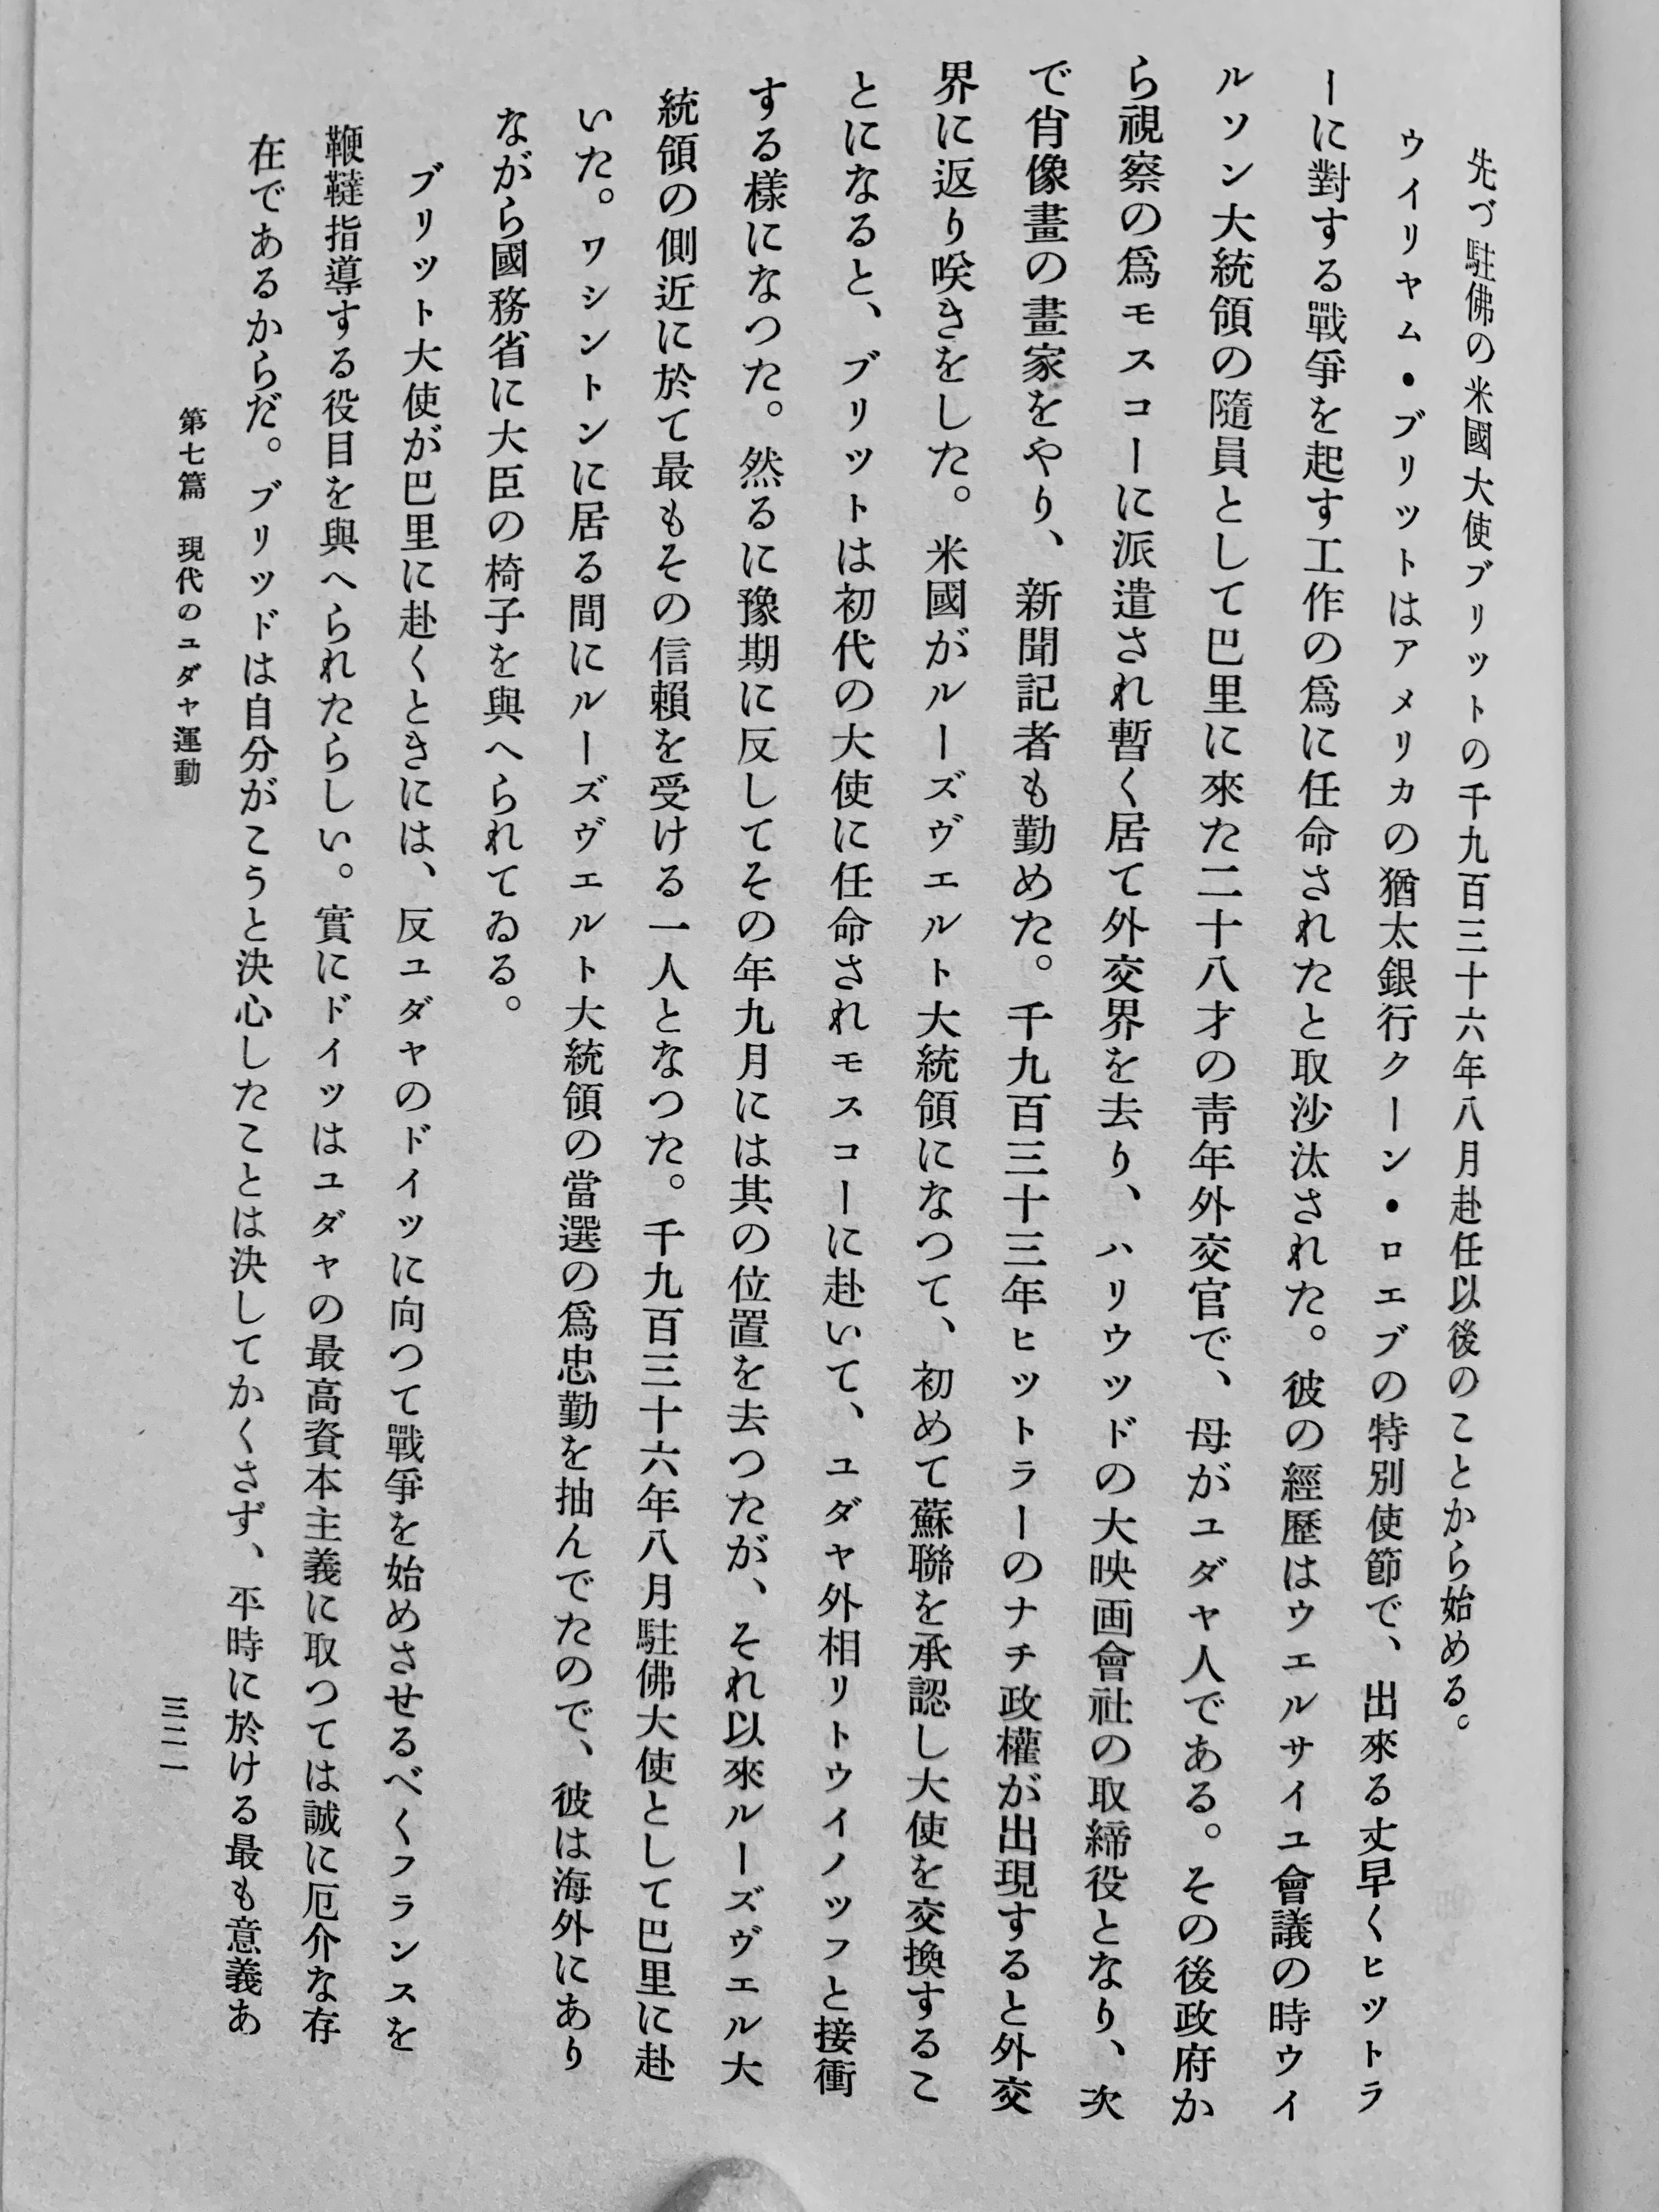 先づ駐佛の米國大使ブリットの千九百三十六年八月赴任以後のことから始める。
ウイリヤム・ブリットはアメリカの猶太銀行クーン・ロエブの特別使節で、出來る丈早くヒットラ
ーに對する戰爭を起す工作の爲に任命されたと取沙汰された。彼の經歷はウエルサイユ會議の時ウイ
ルソン大統領の隨員として巴里に來た二十八才の靑年外交官で、母がユダヤ人である。その後政府か
ら視察の爲モスコーに派遣され暫く居て外交界を去り、ハリウッドの大映画會社の取締役となり、次
で肖像畫の畫家をやり、新聞記者も勤めた。千九百三十三年ヒットラーのナチ政權が出現すると外交
界に返り咲きをした。米國がルーズヴエルト大統領になつて、初めて蘇聯を承認し大使を交換するこ
とになると、ブリットは初代の大使に任命されモスコーに赴いて、ユダヤ外相リトウイノッフと接衝
する樣になつた。然るに豫期に反してその年九月には其の位置を去つたが、それ以來ルーズヴエル大
統領の側近に於て最もその信賴を受ける一人となつた。千九百三十六年八月駐佛大使として巴里に赴
いた。ワシントンに居る間にルーズヴエルト大統領の當選の爲忠勤を抽んでたので、彼は海外にあり
ながら國務省に大臣の椅子を與へられてゐる。
ブリット大使が巴里に赴くときには、反ユダヤのドイツに向つて戰爭を始めさせるべくフランスを
鞭韃指導する役目を與へられたらしい。實にドイツはユダヤの最高資本主義に取つては誠に厄介な存
在であるからだ。ブリッドは自分がこうと決心したことは決してかくさず、平時に於ける最も意義あ
第七篇　現代のユダヤ運動
三二一